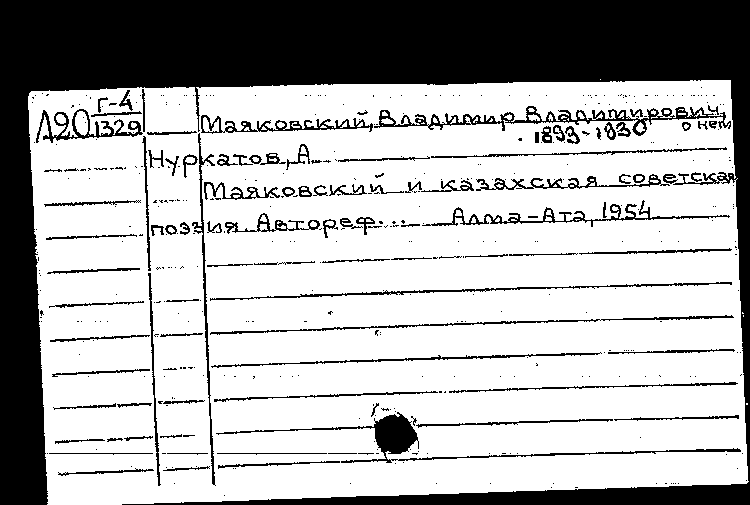 Л20 Г-4/1329
Маяковский, Владимир Владимирович,
1893-1930 о нем
Нуркатов, А
Маяковский и казахская советская
поэзия. Автореф... Алма-Ата, 1954